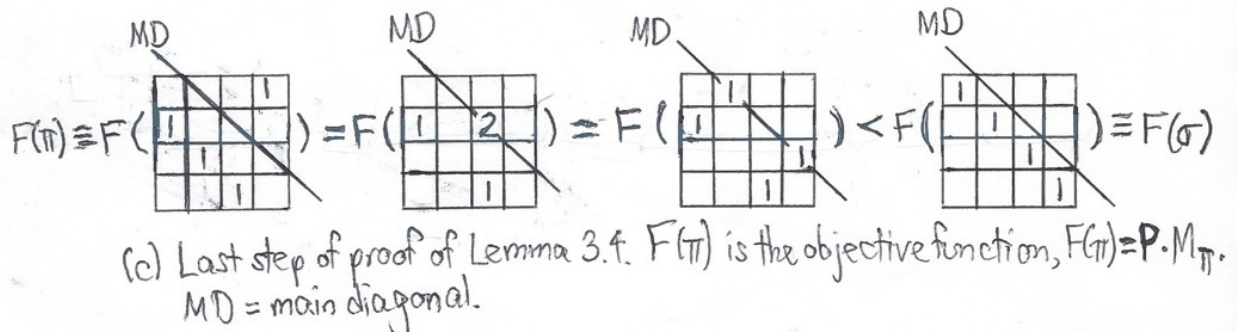 MD MD MD MD
F(π) ≡ F( 1 1 1 1 ) = F( 1 2 1 ) = F( 1 1 1 1 ) < F( 1 1 1 1 ) ≡ F(σ)
(c) Last step of proof of Lemma 3.4. F(π) is the objective function, F(π)=P·Mπ.
MD = main diagonal.